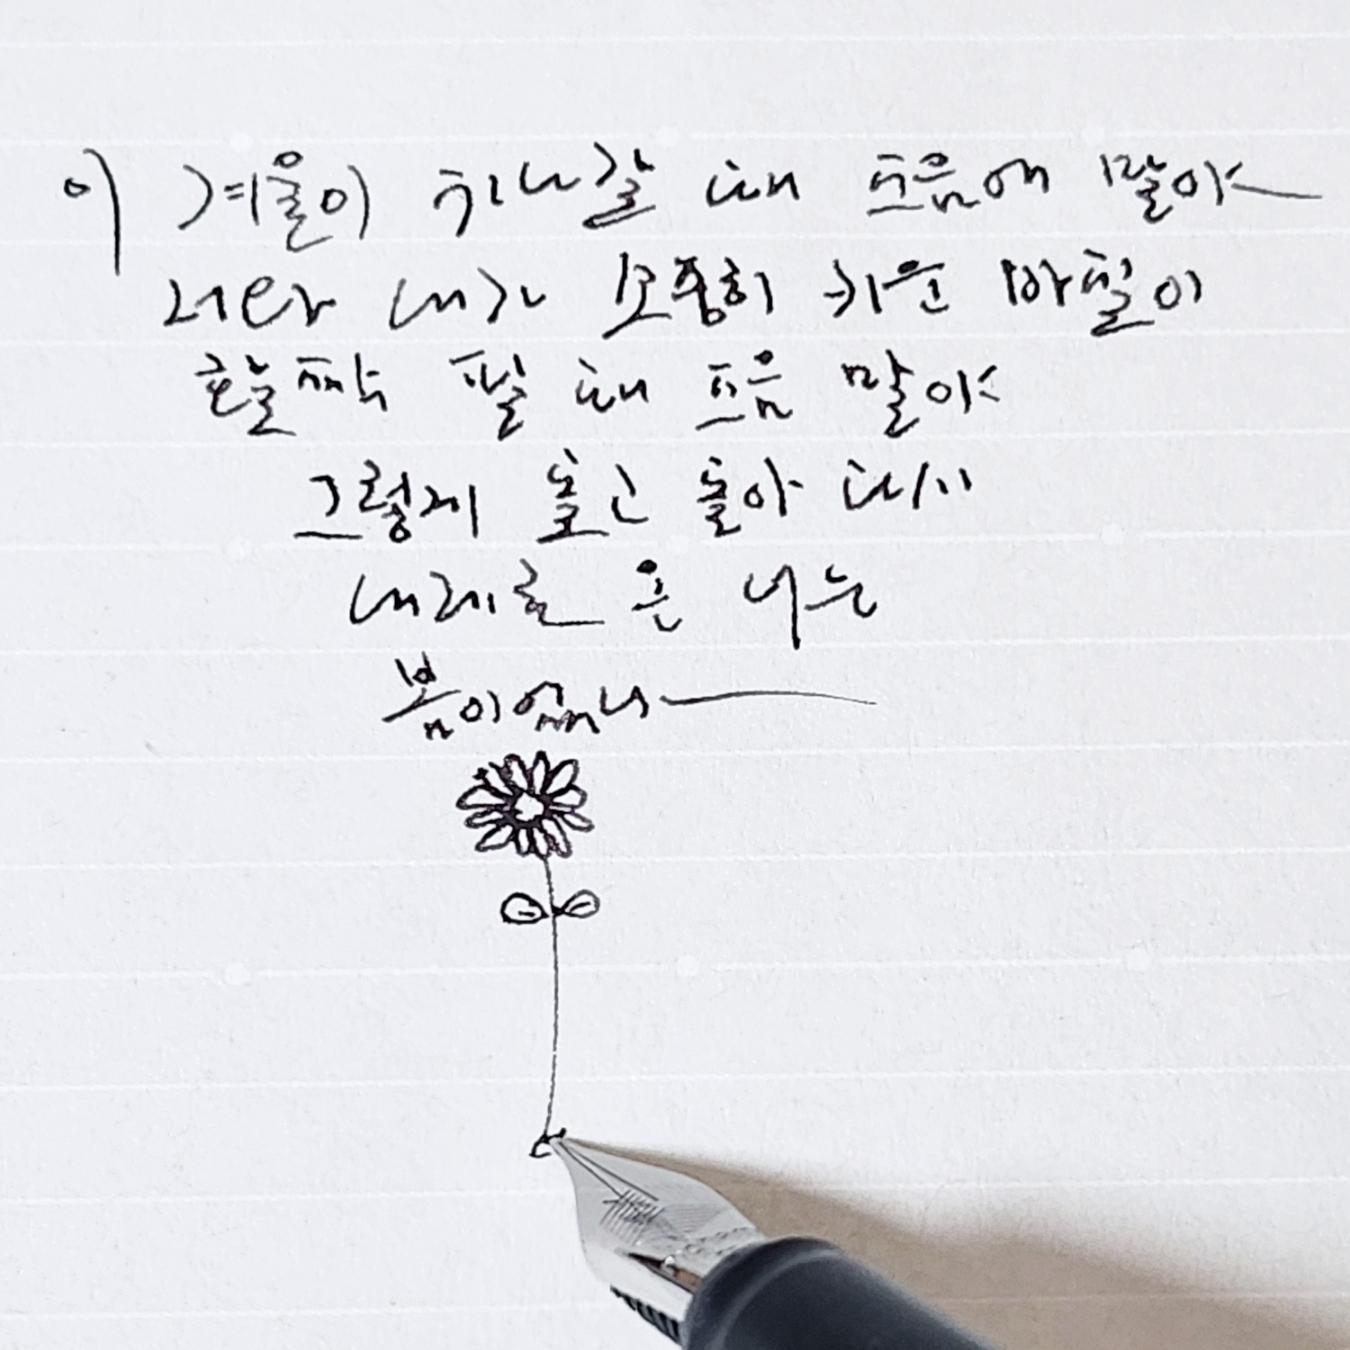 이 겨울이 지나갈 때 쯤에 말야
너와 내가 소중히 키운 마음이
활짝 필 때 쯤 말야
그렇게 돌고 돌아 다시
내게로 온 너는
봄이었나